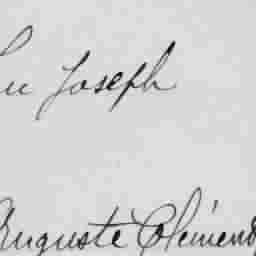 Joseph
Auguste Clément